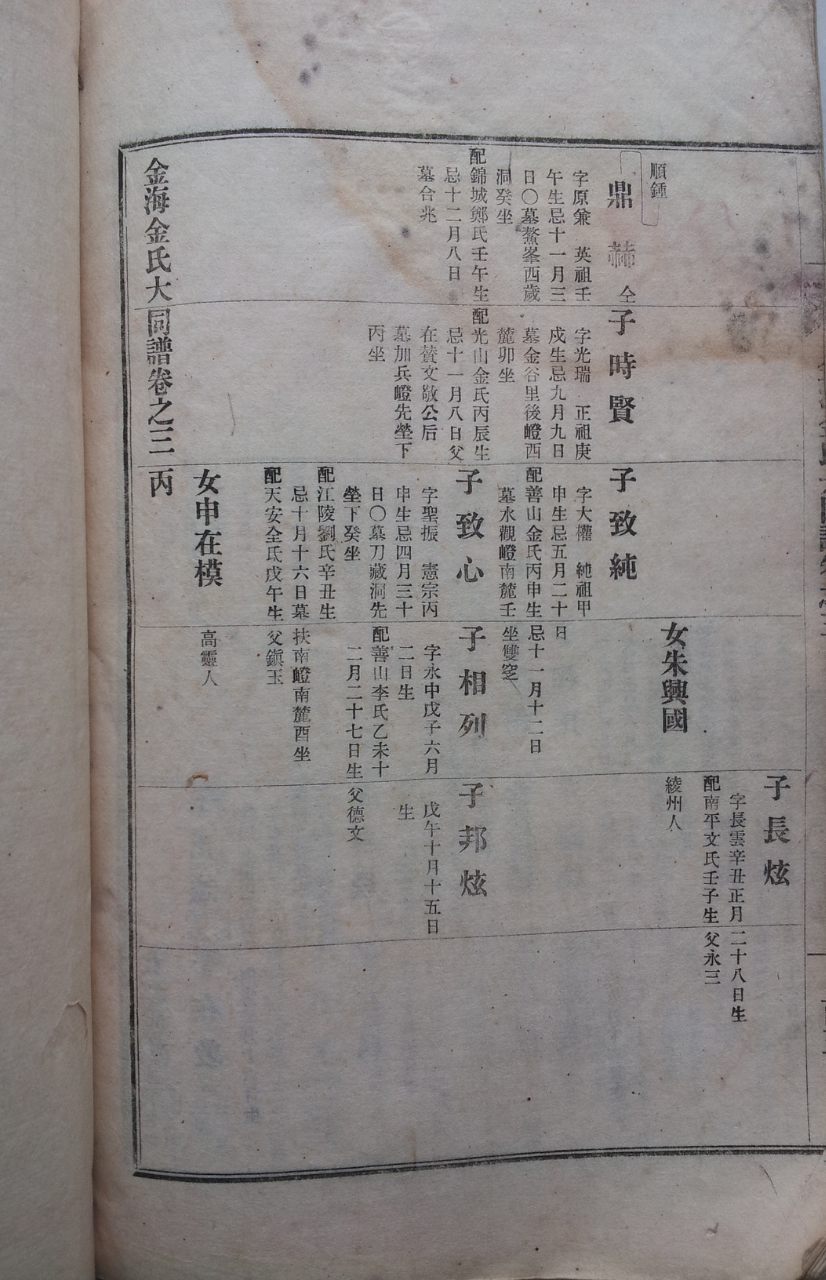 順鍾
鼎赫 仝
字原兼 英祖壬
午生忌十一月三
日〇墓鰲峯西歲
洞癸坐
配錦城鄭氏壬午生
忌十二月八日
墓合兆
子時賢
字光瑞 正祖庚
戌生忌九月九日
墓金谷里後嶝西
麓卯坐
配光山金氏丙辰生
忌十一月八日父
在贊文敬公后
墓加兵嶝先塋下
丙坐
子致純
字大權 純祖甲
申生忌五月二十
日
配善山金氏丙申生
忌十一月十二日
墓水觀嶝南麓壬
坐雙窆
子致心
字聖振 憲宗丙
申生忌四月三十
日〇墓刀藏洞先
塋下癸坐
配江陵劉氏辛丑生
忌十月十六日墓
扶南嶝南麓酉坐
配天安全氏戊午生
父鎭玉
女申在模
高靈人
女朱興國
綾州人
子相列
字永中戊子六月
二日生
配善山李氏乙未十
二月二十七日生
父德文
子長炫
字長雲辛丑正月
二十八日生
配南平文氏壬子生
父永三
子邦炫
戊午十月十五日
生
金海金氏大同譜卷之三 丙